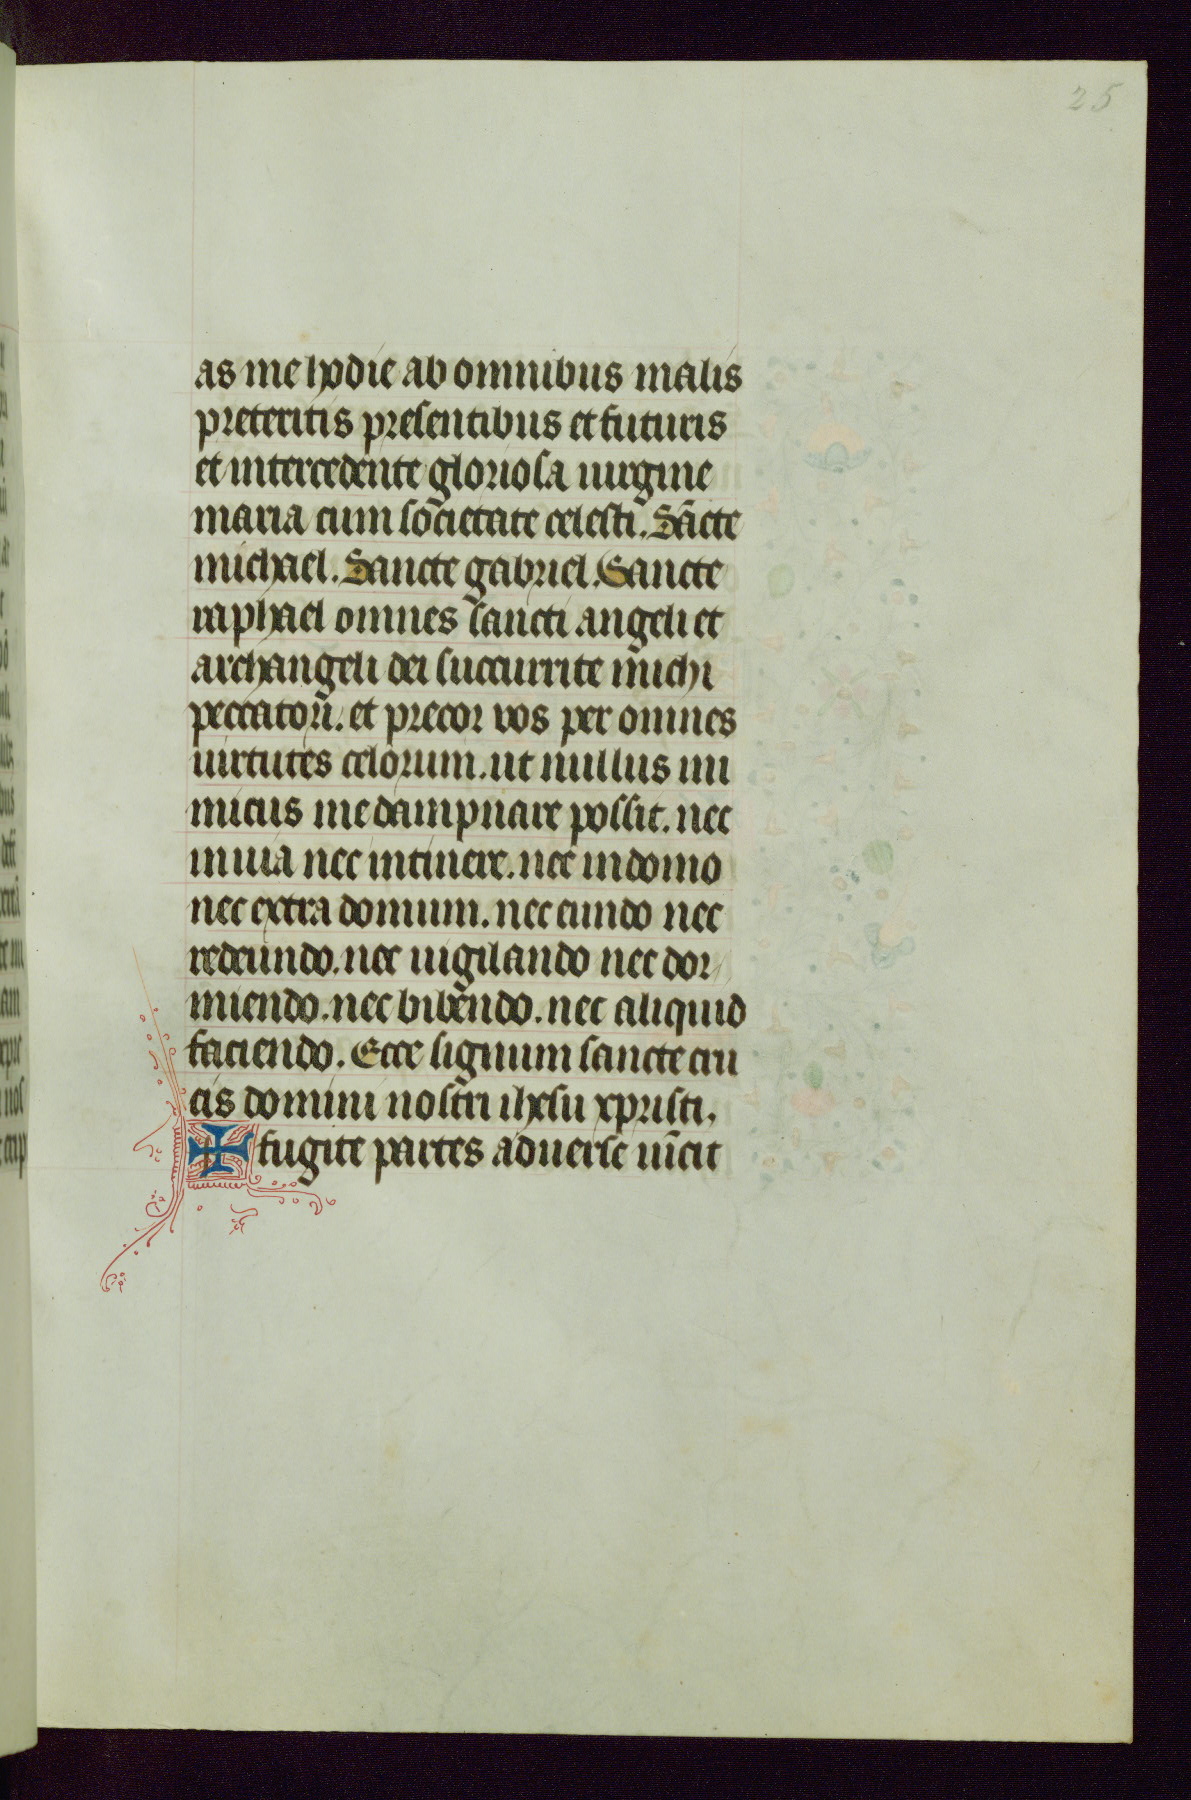 25
as me hodie ab omnibus malis
preteritis presentibus et futuris
et intercedente gloriosa uirgine
maria cum societate celesti. Sācte
michael. Sancte gabriel. Sancte
raphael omnes sancti angeli et
archangeli dei succurrite michi
peccatori. et precor vos per omnes
uirtutes celorum. ut nullus ini
micus me dampnare possit. nec
in uia nec intinere. nec in domo
nec extra domum. nec eundo nec
redeundo. nec uigilando nec dor
miendo. nec bibendo. nec aliquid
faciendo. Ecce signum sancte cru
cis domini nostri ihesu xpristi.
✠ fugite partes aduerse uīcit